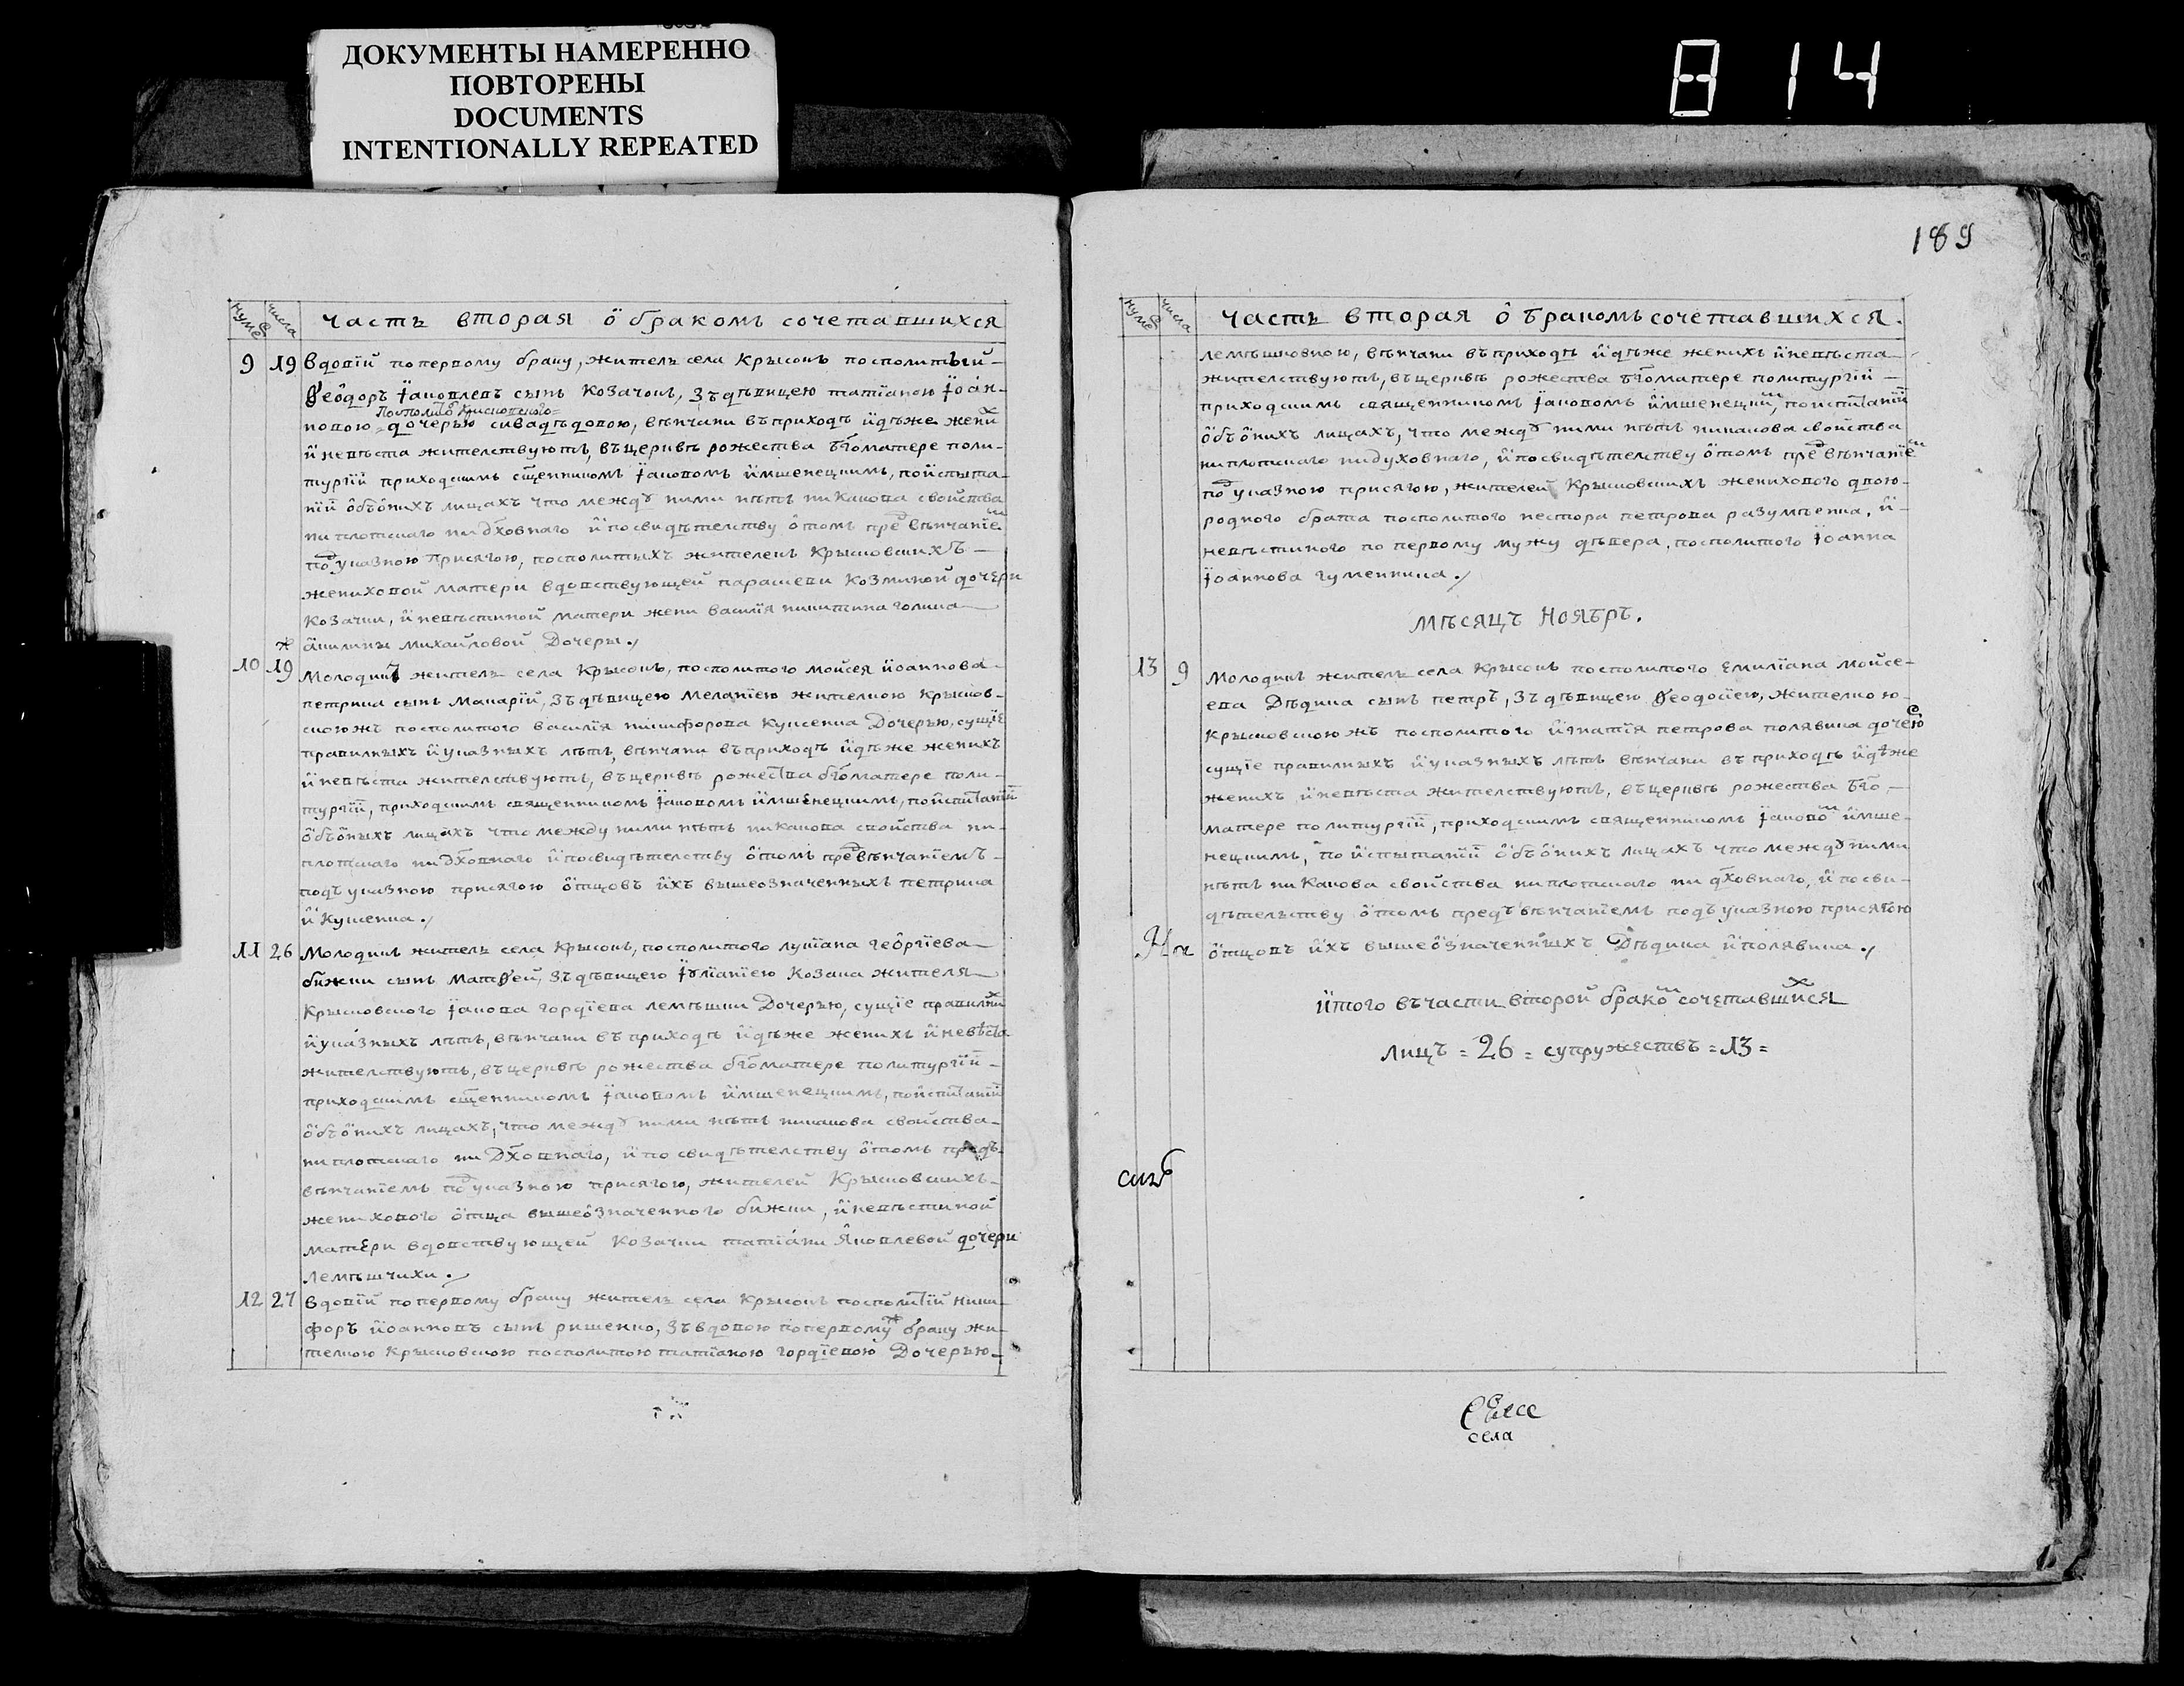 ДОКУМЕНТЫ НАМЕРЕННО
ПОВТОРЕНЫ
DOCUMENTS
INTENTIONALLY REPEATED
814
нумеръ числа часть вторая о бракомъ сочетавшихся
9 19 вдовїй попервому браку, житель села Крысокъ посполитый
Ѳеодоръ Іаковлевъ сынъ Козачокъ, зъдѣвицею татїаною Іоан-
посполитого Крисковского
новою дочерью сивадѣдовою, вѣнчани въприходѣ идѣже жених
и невѣста жителствуютъ, въцерквѣ рожества бгоматере поли-
тургїи приходскимъ сщенникомъ Іаковомъ имшенецкимъ, поиспыта-
нїи объонихъ лицахъ что междȣ ними нѣтъ никакова свойства
ниплотскаго нидховнаго ипосвидѣтелству отомъ предвѣнчанїем
подуказною присягою, посполитыхъ жителей Крысковскихъ
жениховой матери вдовствующей параскеви Козминой дочери
Козачки, иневѣстиной матери жени василїя никитина голика
акилины михайловой Дочеры.
10 19 Молодикъ житель села Крысокъ, посполитого мойсея иоаннова
петрика сынъ Макарїй, зъдѣвицею меланїею жителкою Крысков-
скоюжъ посполитого василїя никифорова Куксенка Дочерью, сущїе
правилныхъ иуказныхъ лѣтъ, вѣнчани въприходѣ идѣже женихъ
иневѣста жителствуютъ, въцерквѣ рожества бгоматере поли-
тургїи, приходскимъ священникомъ Іаковомъ имшенецкимъ, поиспытанїи
объоныхъ лицахъ что между ними нѣтъ никакова свойства ни-
плотскаго нидховнаго ипосвидѣтелству отомъ предвѣнчанїемъ
подъуказною присягою отцовъ ихъ вышеозначенныхъ петрика
и Кушенка.
11 26 Молодикъ житель села Крысокъ, посполитого лукїана георгїева
бижки сынъ матѳей, зъдѣвицею Іȣлїанїею Козака жителя
Крысковского Іакова гордїева лемѣшки Дочерью, сущїе правилних
иуказныхъ лѣтъ, вѣнчани въприходѣ идѣже женихъ иневѣста
жителствуютъ, въцерквѣ рожества бгоматере политургїи
приходскимъ сщенникомъ Іаковомъ имшенецкимъ, поиспытанїи
объонихъ лицахъ, что междȣ ними нѣтъ никакова свойства
ниплотскаго ни Дховнаго, ипо свидѣтелству отомъ предъ
вѣнчанїемъ подуказною присягою, жителей Крысковскихъ
женихового отца вышеозначенного бижки, иневѣстиной
матери вдовствующей Козачки татїани Яковлевой дочери
лемѣшчихи.
12 27 вдовїй попервому браку житель села Крысокъ посполитїй Ники-
форъ иоанновъ сынъ ришенко, зъвдовою попервому браку жи-
телкою Крысковскою посполитою татїаною гордїевою Дочерью
189
нумеръ числа часть вторая о бракомъ сочетавшихся.
лемѣшковною, вѣнчани въприходѣ идѣже женихъ иневѣста
жителствуютъ, въцерквѣ рожества бгоматере политургїи
приходскимъ священникомъ Іаковомъ имшенецким, поиспытанїи
объонихъ лицахъ, что междȣ ними нѣтъ никакова свойства
ниплотскаго нидуховнаго, ипосвидѣтелству отомъ предвѣнчанїем
подуказною присягою, жителей Крысковскихъ женихового двою-
родного брата посполитого нестора петрова разумѣенка, и
невѣстиного по первому мужу дѣвера, посполитого Іоанна
Іоаннова гуменника.
мѣсяцъ Ноябръ.
13 9 Молодикъ житель села Крысокъ посполитого Емилїана мойсе-
ева Дѣдика сынъ петръ, зъдѣвицею Ѳеодосїею, жителкою
Крысковскоюжъ посполитого игнатїя петрова полявика дочерю
сущїе правилныхъ иуказныхъ лѣтъ вѣнчани въприходѣ идѣже
женихъ иневѣста жителствуютъ, въцерквѣ рожества бго-
матере политургїи, приходскимъ священникомъ Іаковом имше-
нецкимъ, по испытанїи объонихъ лицахъ что междȣ ними
нѣтъ никакова свойства ниплотскаго ни дховнаго, ипосви-
дѣтелству отомъ предъвѣнчанїемъ подъуказною присягою
отцовъ ихъ вышеозначенныхъ Дѣдика иполявика.
итого въчасти второй браком сочетавшихся
лицъ = 26 = супружествъ = 13 =
села